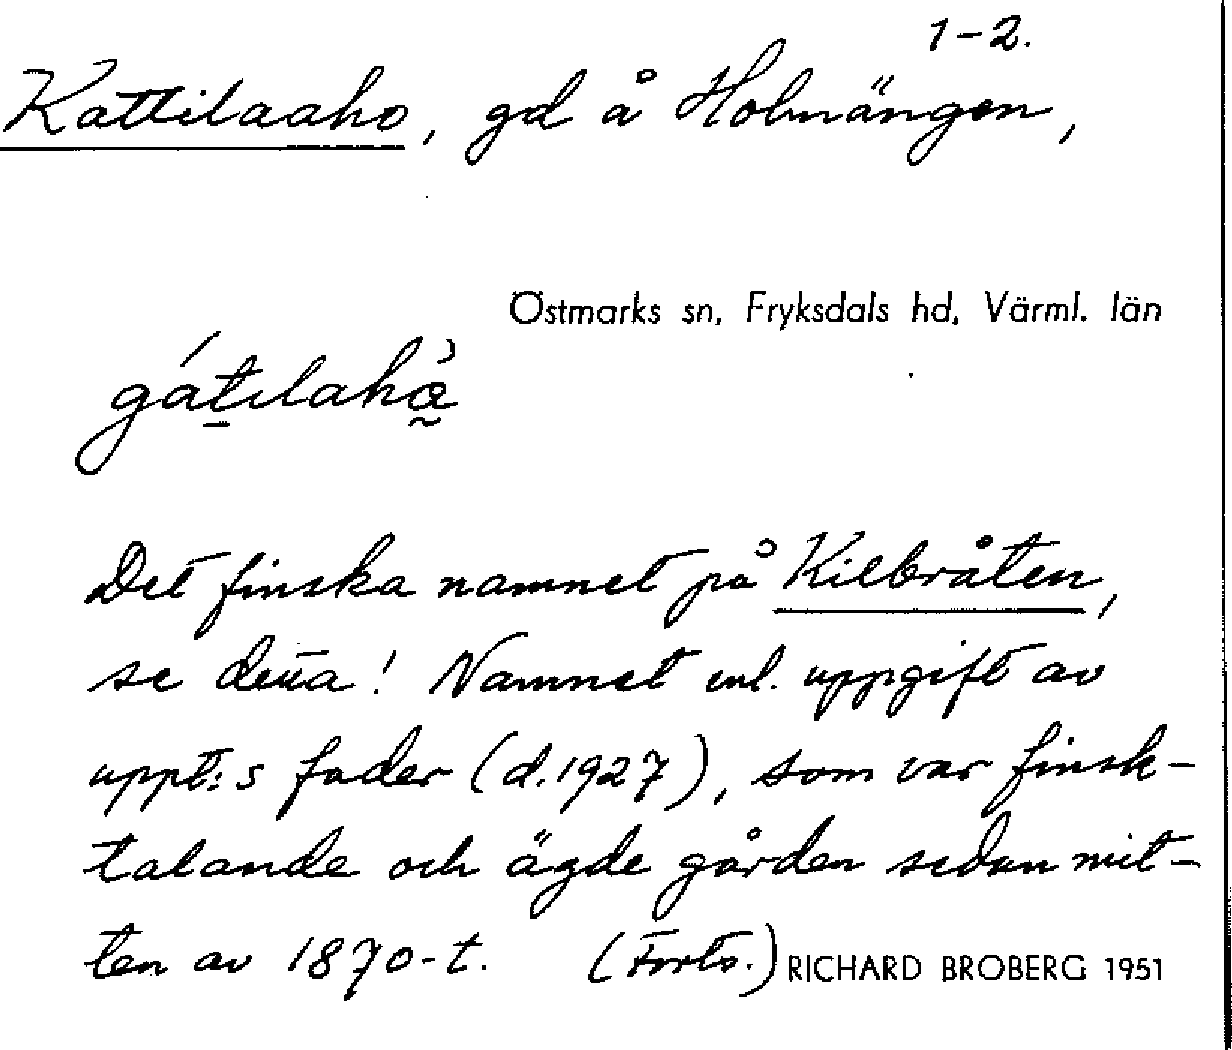 1-2.
Kattilaaho, gd å Holmängen,
Östmarks sn, Fryksdals hd, Värml. län
gátilahà̰
Det finska namnet på Kilbråten,
se denna! Namnet enl. uppgift av
uppt:s fader (d. 1927), som var finsk-
talande och ägde gården sedan mit-
ten av 1870-t. (Forts.) RICHARD BROBERG 1951